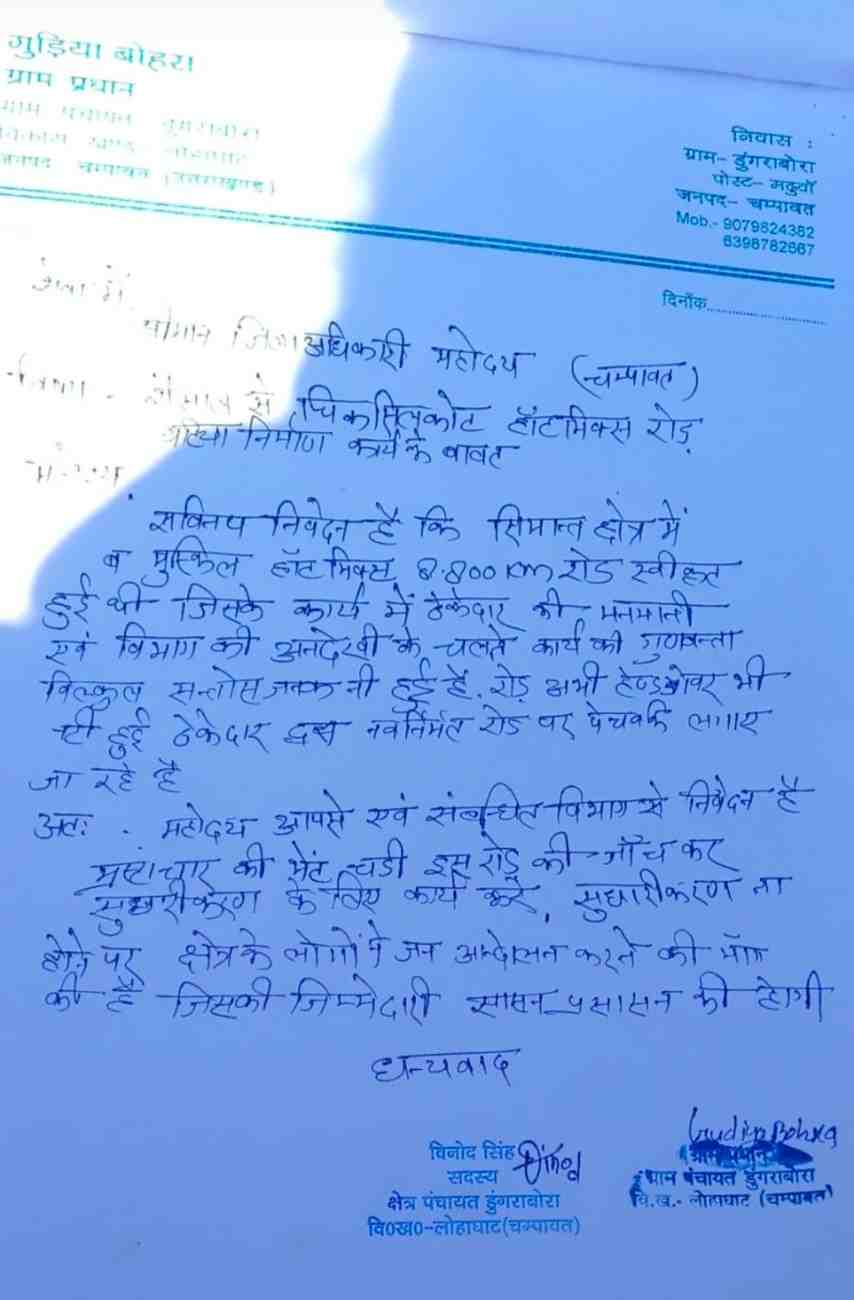 गुड़िया बोहरा
ग्राम प्रधान
ग्राम पंचायत डुंगराबोरा
विकास खण्ड लोहाघाट
जनपद चम्पावत (उत्तराखण्ड)
निवास :
ग्राम- डुंगराबोरा
पोस्ट- मडुवाँ
जनपद- चम्पावत
Mob.- 9079824382
6398782667
दिनाँक
सेवा में
श्रीमान जिलाअधिकारी महोदय (चम्पावत)
विषय - से हॉटमिक्स रोड़
निर्माण कार्य के बावत
महोदय
सविनय निवेदन है कि सिमान्त क्षेत्र में
ब मुस्किल हॉटमिक्स 8.800 Km रोड स्वीकृत
हुई थी जिसके कार्य में ठेकेदार की मनमानी
एवं विभाग की अनदेखी के चलते कार्य की गुणवन्ता
विल्कुल सन्तोसजनक नी हुई है. रोड़ अभी हेण्डओवर भी
नी हुई ठेकेदार द्वारा नवनिर्मत रोड पर पेचवर्क लगाए
जा रहे है
अतः महोदय आपसे एवं संबन्धित विभाग से निवेदन है
भ्रष्टाचार की भेंट चडी इस रोड़ की जाँच कर
सुधारीकरण के लिए कार्य करें, सुधारीकरण ना
होने पर क्षेत्र के लोगों ने जन आन्दोलन करने की माँग
की है जिसकी जिम्मेदारी सासन प्रसासन की होगी
धन्यवाद
विनोद सिंह
सदस्य
क्षेत्र पंचायत डुंगराबोरा
वि0ख0-लोहाघाट(चम्पावत)
Gudiya Bohra
ग्राम प्रधान
ग्राम पंचायत डुंगराबोरा
वि.ख.- लोहाघाट (चम्पावत)